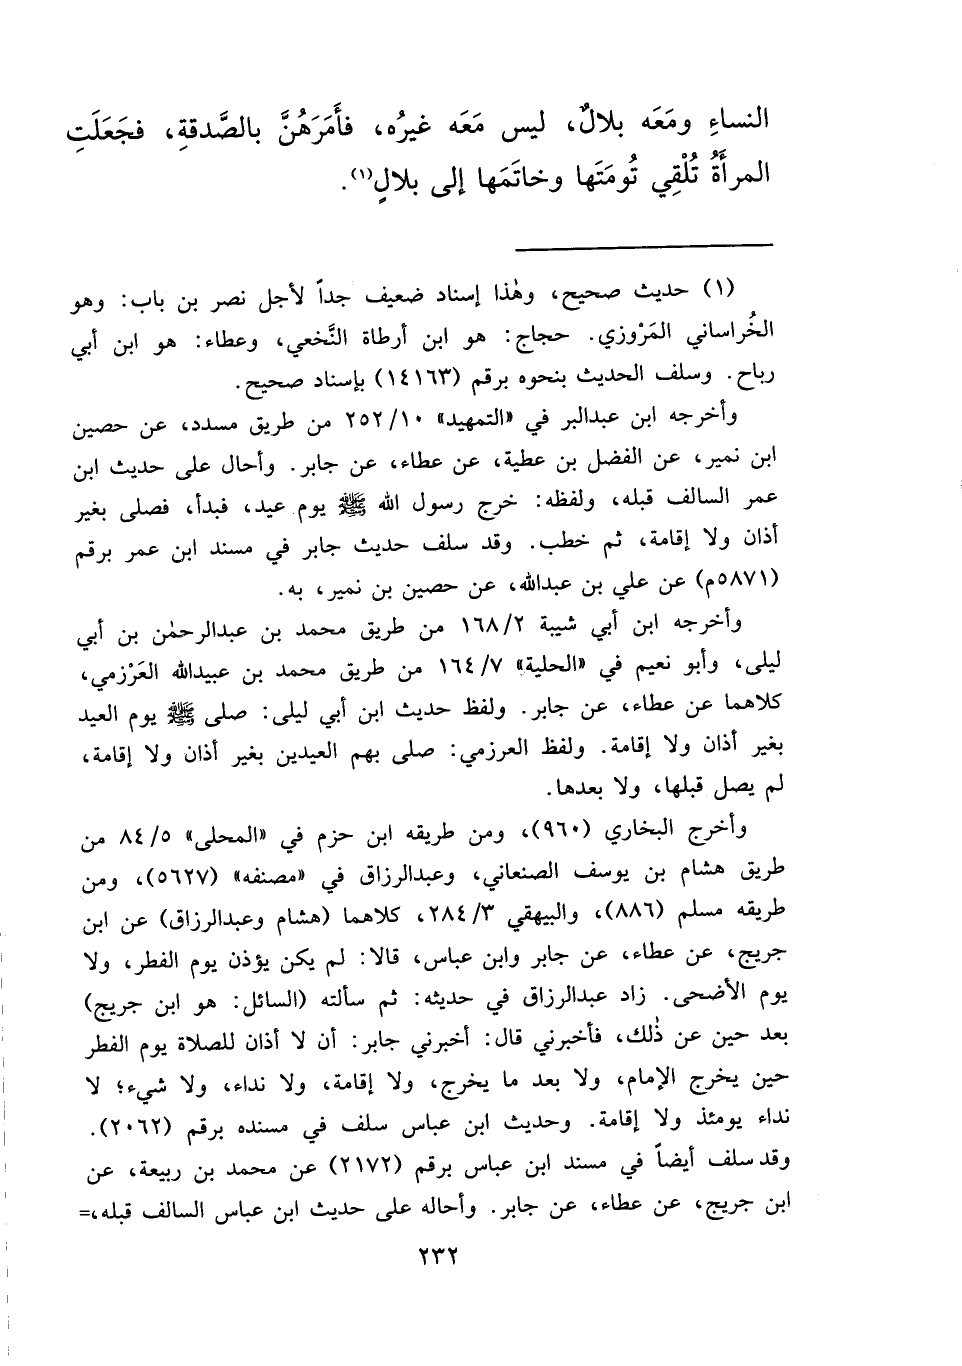 النساءِ ومَعَه بلالٌ، ليس مَعَه غيرُه، فأَمَرَهُنَّ بالصَّدقةِ، فجَعَلَتِ
المرأَةُ تُلْقِي تُومَتَها وخاتَمَها إلى بلالٍ(١).
(١) حديث صحيح، وهٰذا إسناد ضعيف جداً لأجل نصر بن باب: وهو
الخُراساني المَرْوزي. حجاج: هو ابن أرطاة النَّخعي، وعطاء: هو ابن أبي
رباح. وسلف الحديث بنحوه برقم (١٤١٦٣) بإسناد صحيح.
وأخرجه ابن عبدالبر في «التمهيد» ٢٥٢/١٠ من طريق مسدد، عن حصين
ابن نمير، عن الفضل بن عطية، عن عطاء، عن جابر. وأحال على حديث ابن
عمر السالف قبله، ولفظه: خرج رسول الله ﷺ يوم عيد، فبدأ، فصلى بغير
أذان ولا إقامة، ثم خطب. وقد سلف حديث جابر في مسند ابن عمر برقم
(٥٨٧١م) عن علي بن عبدالله، عن حصين بن نمير، به.
وأخرجه ابن أبي شيبة ١٦٨/٢ من طريق محمد بن عبدالرحمٰن بن أبي
ليلى، وأبو نعيم في «الحلية» ١٦٤/٧ من طريق محمد بن عبيدالله العَرْزمي،
كلاهما عن عطاء، عن جابر. ولفظ حديث ابن أبي ليلى: صلى ﷺ يوم العيد
بغير أذان ولا إقامة. ولفظ العرزمي: صلى بهم العيدين بغير أذان ولا إقامة،
لم يصل قبلها، ولا بعدها.
وأخرج البخاري (٩٦٠)، ومن طريقه ابن حزم في «المحلى» ٨٤/٥ من
طريق هشام بن يوسف الصنعاني، وعبدالرزاق في «مصنفه» (٥٦٢٧)، ومن
طريقه مسلم (٨٨٦)، والبيهقي ٢٨٤/٣، كلاهما (هشام وعبدالرزاق) عن ابن
جريج، عن عطاء، عن جابر وابن عباس، قالا: لم يكن يؤذن يوم الفطر، ولا
يوم الأضحى. زاد عبدالرزاق في حديثه: ثم سألته (السائل: هو ابن جريج)
بعد حين عن ذٰلك، فأخبرني قال: أخبرني جابر: أن لا أذان للصلاة يوم الفطر
حين يخرج الإمام، ولا بعد ما يخرج، ولا إقامة، ولا نداء، ولا شيء؛ لا
نداء يومئذ ولا إقامة. وحديث ابن عباس سلف في مسنده برقم (٢٠٦٢).
وقد سلف أيضاً في مسند ابن عباس برقم (٢١٧٢) عن محمد بن ربيعة، عن
ابن جريج، عن عطاء، عن جابر. وأحاله على حديث ابن عباس السالف قبله،=
٢٣٢